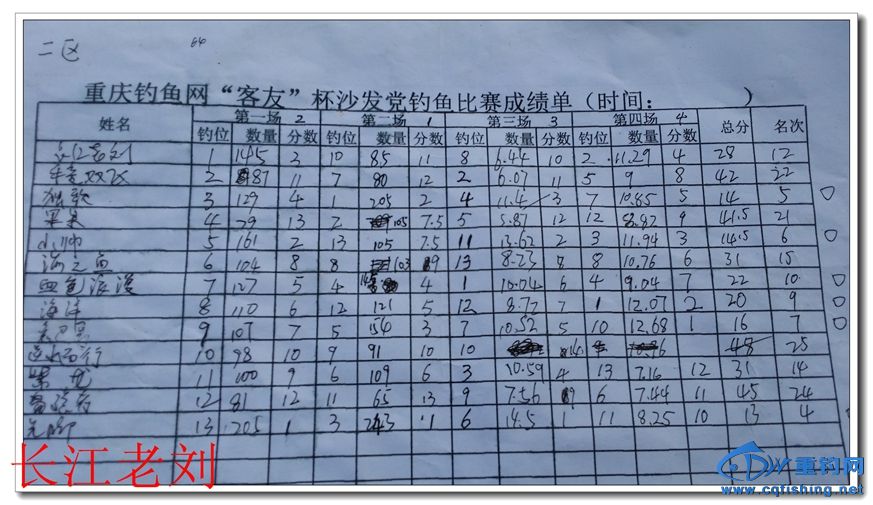 二区
重庆钓鱼网“客友”杯沙发党钓鱼比赛成绩单（时间：　　　）
姓名 第一场 2 第二场 1 第三场 3 第四场 4 总分 名次
钓位 数量 分数 钓位 数量 分数 钓位 数量 分数 钓位 数量 分数
长江老刘 1 145 3 10 85 11 8 6.44 10 2 11.29 4 28 12
2 87 11 7 80 12 2 6.07 11 5 9 8 42 22
3 129 4 1 205 2 4 11.4 3 7 10.85 5 14 5
果果 4 29 13 2 105 7.5 5 5.87 12 12 8.82 9 41.5 21
5 161 2 13 105 7.5 11 13.62 2 3 11.94 3 14.5 6
海之鱼 6 104 8 8 103 9 13 8.23 8 10.76 6 31 15
血色浪漫 7 127 5 4 4 1 10.04 6 4 9.04 7 22 10
海洋 8 110 6 12 121 5 12 8.77 7 1 12.07 2 20 9
9 107 7 5 156 3 7 10.52 5 10 12.68 1 16 7
10 98 10 9 91 10 10 14 48 25
11 100 9 6 109 6 3 10.59 4 13 7.16 12 31 14
12 81 12 11 65 13 9 7.56 9 6 7.44 11 45 24
13 205 1 3 243 1 6 14.5 1 11 8.25 10 13 4
长江老刘
重钓网
www.cqfishing.net